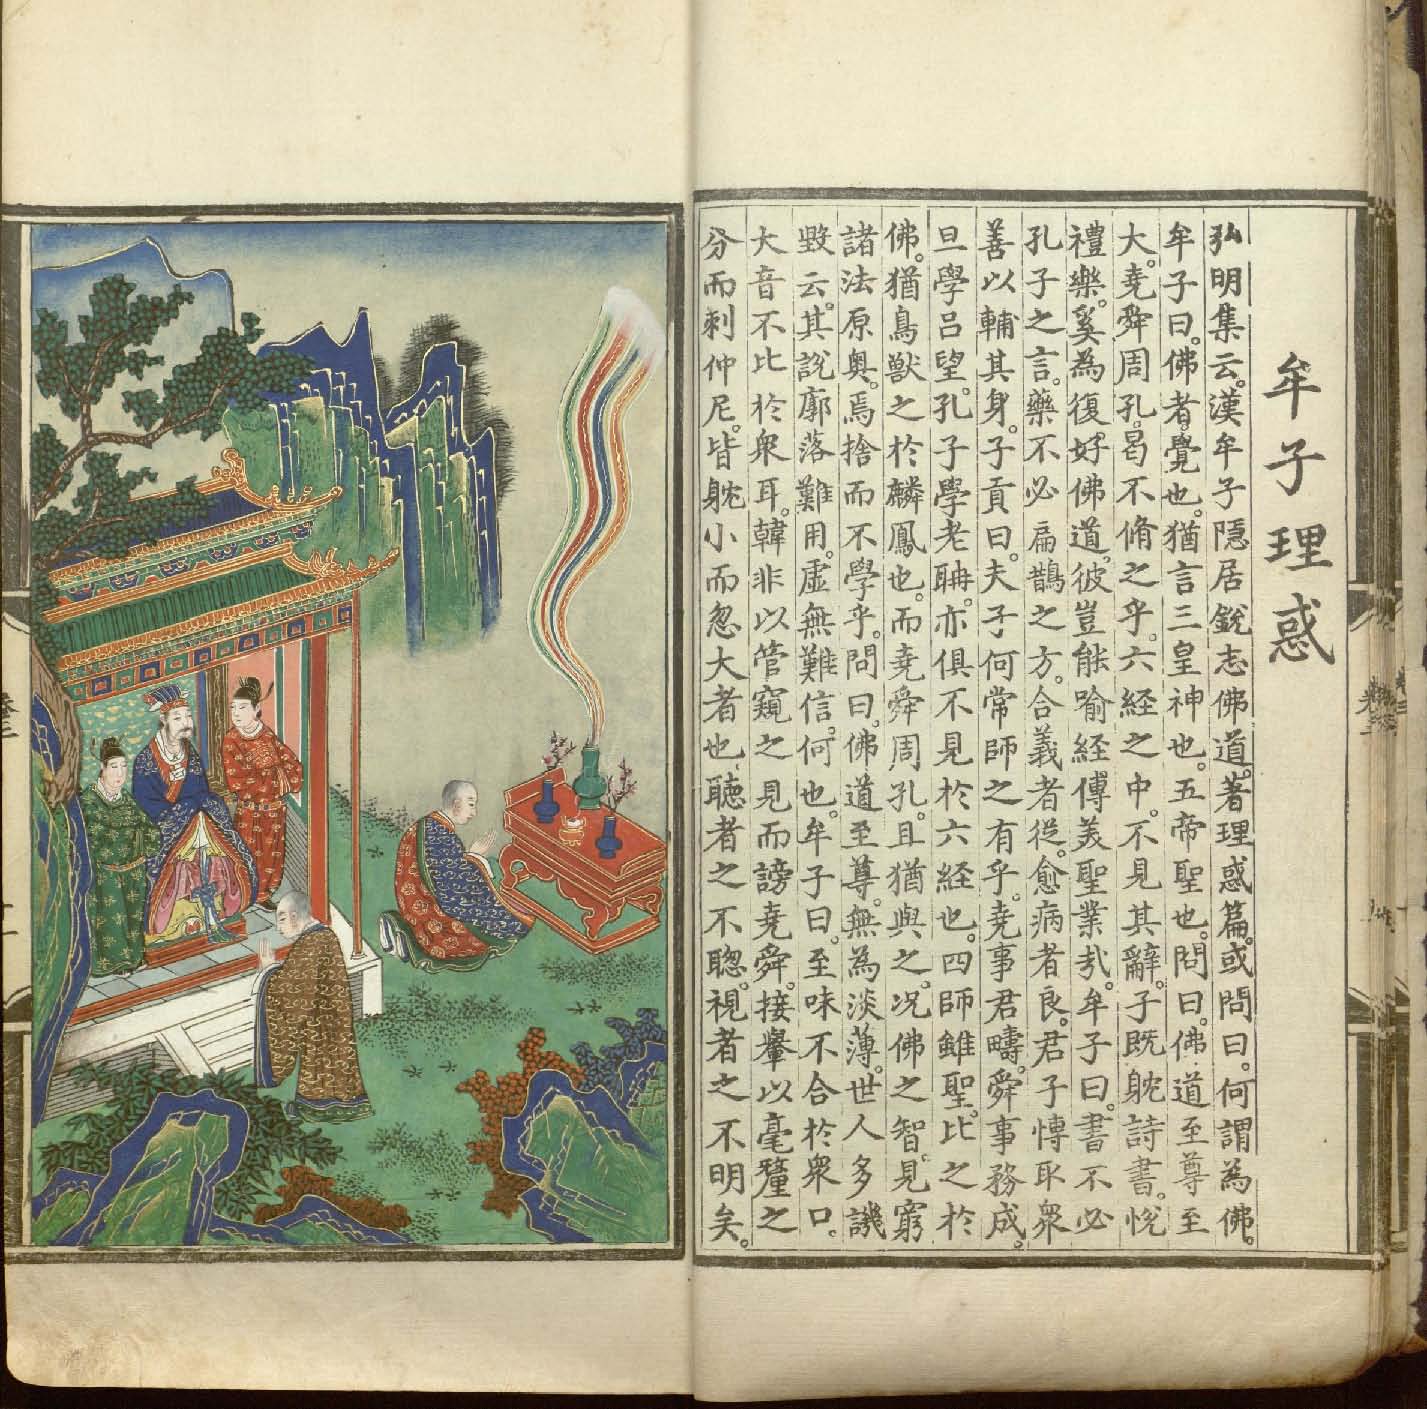 牟子理惑
弘明集云。漢牟子隱居銳志佛道。著理惑篇。或問曰。何謂為佛。
牟子曰。佛者。覺也。猶言三皇神也。五帝聖也。問曰。佛道至尊至
大。堯舜周孔。曷不脩之乎。六経之中。不見其辭。子既躭詩書。悅
禮樂。奚為復好佛道。彼豈能踰経傳美聖業哉。牟子曰。書不必
孔子之言。藥不必扁鵲之方。合義者從。愈病者良。君子博取眾
善以輔其身。子貢曰。夫子何常師之有乎。堯事君疇。舜事務成。
旦學呂望。孔子學老聃。亦俱不見於六経也。四師雖聖。比之於
佛。猶鳥獸之於麟鳳也。而堯舜周孔。且猶與之。况佛之智。見窮
諸法原奥。焉捨而不學乎。問曰。佛道至尊。無為淡薄。世人多譏
毀云。其說廓落難用。虛無難信。何也。牟子曰。至味不合於衆口。
大音不比於衆耳。韓非以管窺之見而謗堯舜。接轝以毫釐之
分而刺仲尼。皆躭小而忽大者也。聽者之不聰。視者之不明矣。